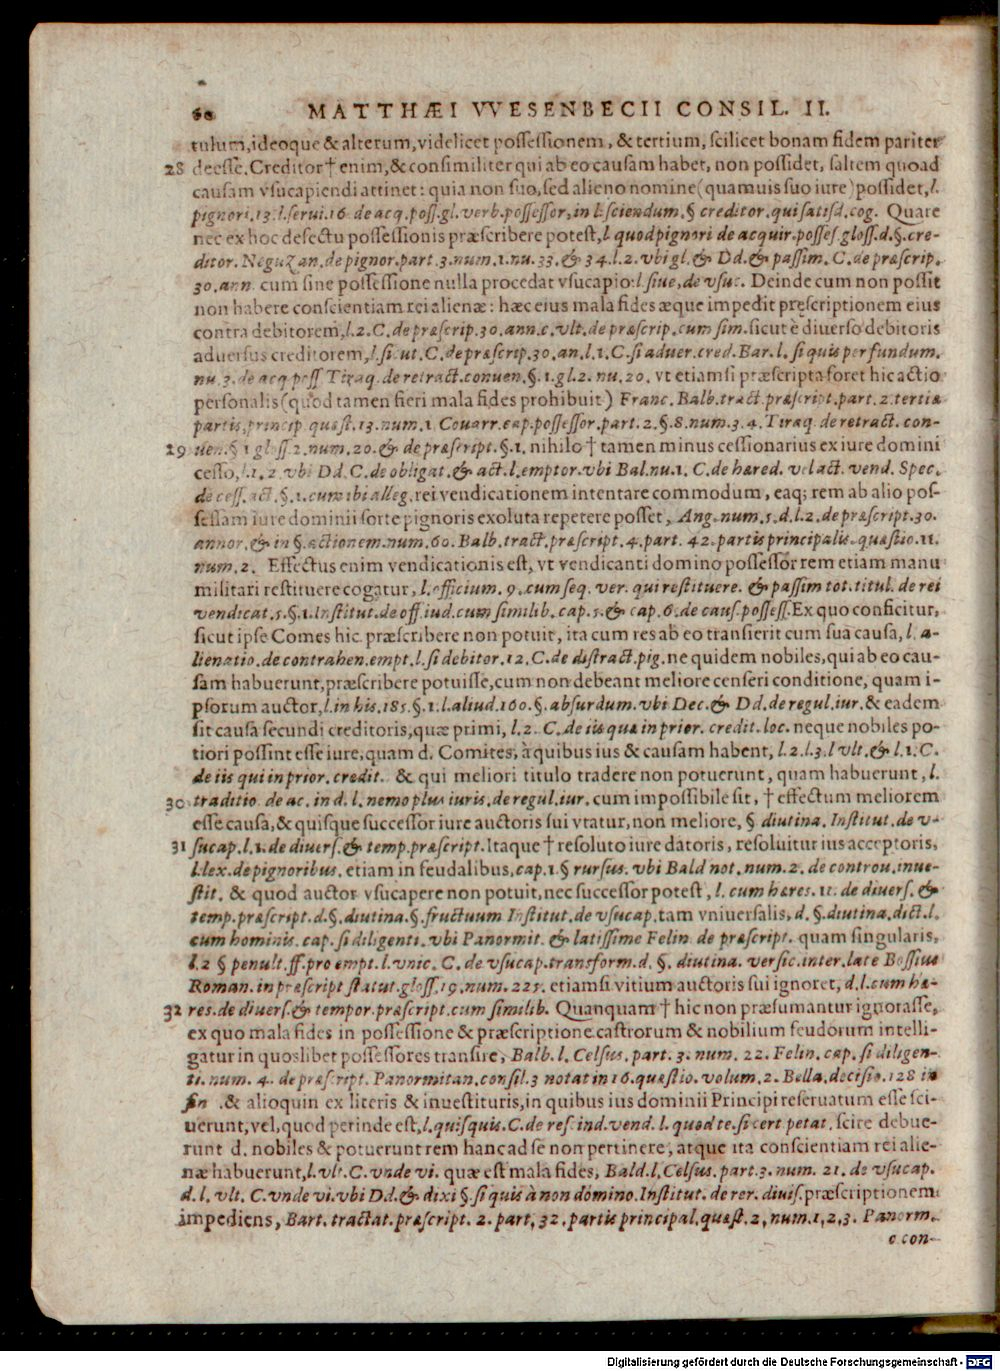 60 MATTHÆI VVESENBECII CONSIL. II.
tulum, ideoque & alterum, videlicet possessionem, & tertium, scilicet bonam fidem pariter
28 deesse. Creditor † enim, & consimiliter qui ab eo causam habet, non possidet, saltem quoad
causam vsucapiendi attinet: quia non suo, sed alieno nomine (quamuis suo iure) possidet, l.
pignori. 13. l. serui. 16. de acq. poss. gl. verb. possessor, in l. sciendum. § creditor. qui satisd. cog. Quare
nec ex hoc defectu possessionis præscribere potest, l quod pignori de acquir. posses. gloss. d. §. cre-
ditor. Neguzan. de pignor. part. 3. num. 1. nu. 33. & 34. l. 2. vbi gl. & Dd. & passim. C. de præscrip.
30. ann. cum sine possessione nulla procedat vsucapio: l. siue, de vsuc. Deinde cum non possit
non habere conscientiam rei alienæ: hæc eius mala fides æque impedit pręscriptionem eius
contra debitorem, l. 2. C. de præscrip. 30. ann. c. vlt. de præscrip. cum sim. sicut è diuerso debitoris
aduersus creditorem, l. sicut. C. de præscrip. 30. an. l. 1. C. si aduer. cred. Bar. l. si quis per fundum.
nu. 3. de acq poss Tiraq. de retract. conuen. §. 1. gl. 2. nu. 20. vt etiamsi præscripta foret hic actio
personalis (quod tamen fieri mala fides prohibuit) Franc. Balb. tract. præscript. part. 2. tertiæ
partis, princip. quæst. 13. num. 1. Couarr. cap. possessor. part. 2. §. 8. num. 3. 4. Tiraq. de retract. con-
29 uen. § 1 gloss. 2. num. 20. & de præscript. §. 1. nihilo † tamen minus cessionarius ex iure domini
cesso, l. 1. 2. vbi Dd. C. de obligat. & act. l. emptor. vbi Bal. nu. 1. C. de hæred. vel act. vend. Spec.
de cess. act. §. 1. cum ibi alleg. rei vendicationem intentare commodum, eaq; rem ab alio pos-
sessam iure dominii sorte pignoris exoluta repetere posset, Ang. num. 5. d. l. 2. de præscript. 30.
annor. & in §. actionem. num. 60. Balb. tract. præscript. 4. part. 42. partis principalis. quæstio. 11.
num. 2. Effectus enim vendicationis est, vt vendicanti domino possessor rem etiam manu
militari restituere cogatur, l. officium. 9. cum seq. ver. qui restituere. & passim tot. titul. de rei
vendicat. 5. §. 1. Institut. de off. iud. cum similib. cap. 5. & cap. 6. de caus. possess. Ex quo conficitur,
sicut ipse Comes hic præscribere non potuit, ita cum res ab eo transierit cum sua causa, l. a-
lienatio. de contrahen. empt. l. si debitor. 12. C. de distract. pig. ne quidem nobiles, qui ab eo cau-
sam habuerunt, præscribere potuisse, cum non debeant meliore censeri conditione, quam i-
psorum auctor, l. in his. 185. §. 1. l. aliud. 160. §. absurdum. vbi Dec. & Dd. de regul. iur. & eadem
sit causa secundi creditoris, quæ primi, l. 2. C. de iis qua in prior. credit. loc. neque nobiles po-
tiori possint esse iure, quam d. Comites, à quibus ius & causam habent, l. 2. l. 3. l vlt. & l. 1. C.
de iis qui in prior. credit. & qui meliori titulo tradere non potuerunt, quam habuerunt, l.
30 traditio de ac. in d. l. nemo plus iuris. de regul. iur. cum impossibile sit, † effectum meliorem
esse causa, & quisque successor iure auctoris sui vtatur, non meliore, § diutina. Institut. de v-
31 sucap. l. 1. de diuers. & temp. præscript. Itaque † resoluto iure datoris, resoluitur ius acceptoris,
l. lex. de pignoribus. etiam in feudalibus, cap. 1. § rursus. vbi Bald not. num. 2. de controu. inue-
stit. & quod auctor vsucapere non potuit, nec successor potest, l. cum hæres. 11. de diuers. &
temp. præscript. d. §. diutina. §. fructuum Institut. de vsucap. tam vniuersalis, d. §. diutina. dict. l.
cum hominis. cap. si diligenti. vbi Panormit. & latissime Felin. de præscript. quam singularis,
l. 2 § penult. ff. pro empt. l. vnic. C. de vsucap. transform. d. §. diutina. versic. inter. late Bossius
Roman. in præscript statut. gloss. 19. num. 225. etiamsi vitium auctoris sui ignoret, d. l. cum hæ-
32 res. de diuers. & tempor. præscript. cum similib. Quanquam † hic non præsumantur ignorasse,
ex quo mala fides in possessione & præscriptione castrorum & nobilium feudorum intelli-
gatur in quoslibet possessores transire, Balb. l. Celsus. part. 3. num. 22. Felin. cap. si diligen-
ti. num. 4. de præscript. Panormitan. consil. 3 notat in 16. quæstio. volum. 2. Bella. decisio. 128 in
fin . & alioquin ex literis & inuestituris, in quibus ius dominii Principi reseruatum esse sci-
uerunt, vel, quod perinde est, l. quisquis. C. de rescind. vend. l. quod te. si cert petat. scire debue-
runt d. nobiles & potuerunt rem hanc ad se non pertinere, atque ita conscientiam rei alie-
næ habuerunt, l. vlt. C. vnde vi. quæ est mala fides, Bald. l. Celsus. part. 3. num. 21. de vsucap.
d. l. vlt. C. vnde vi. vbi Dd. & dixi §. si quis à non domino. Institut. de rer. diuis. præscriptionem
impediens, Bart. tractat. præscript. 2. part, 32. partis principal. quæst. 2, num. 1, 2, 3. Panorm.
c con-
Digitalisierung gefördert durch die Deutsche Forschungsgemeinschaft - DFG